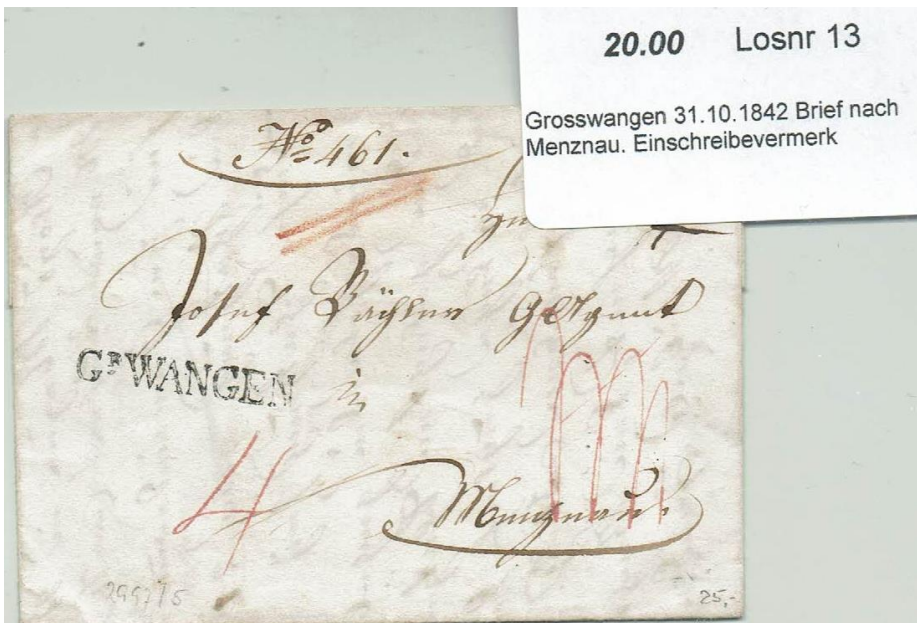 20.00 Losnr 13
Grosswangen 31.10.1842 Brief nach
Menznau. Einschreibevermerk
No 461.
Josef
GR WANGEN
in
4
Menznau.
29977 5
25,-